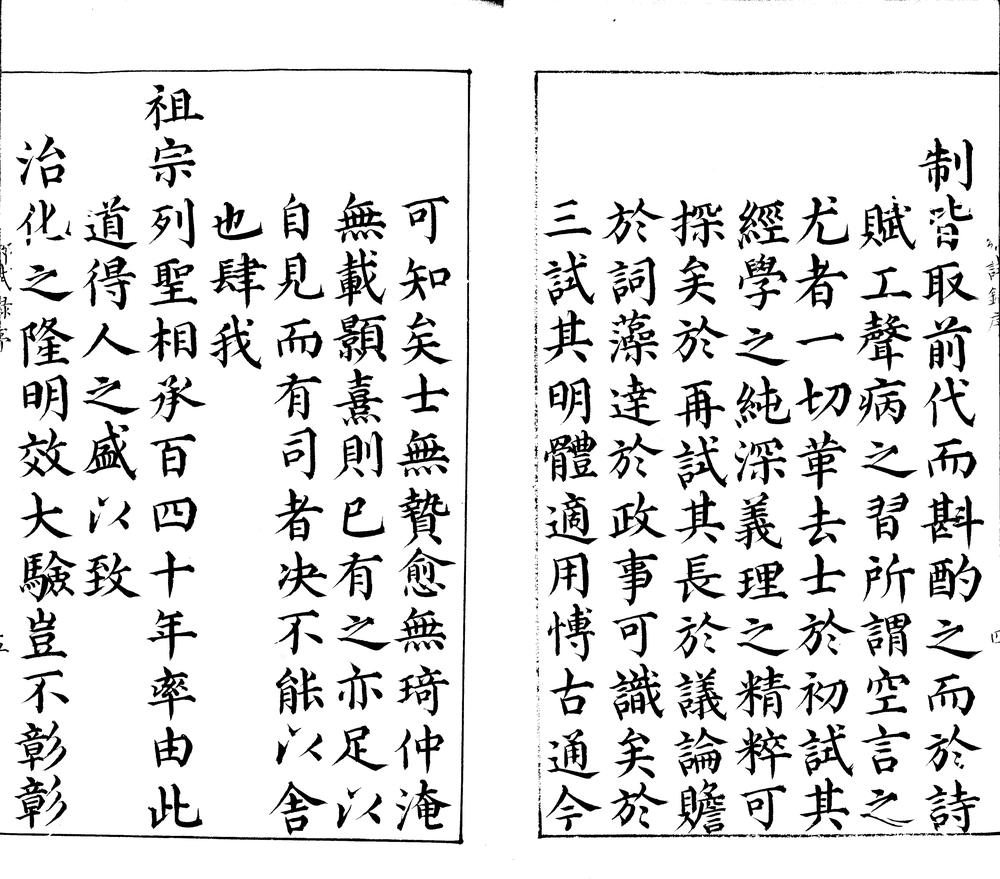 制皆取前代而斟酌之而於詩
賦工聲病之習所謂空言之
尤者一切革去士於初試其
經學之純深義理之精粹可
探矣於再試其長於議論贍
於詞藻達於政事可識矣於
三試其明體適用愽古通今
可知矣士無贄愈無琦仲淹
無載顥熹則已有之亦足以
自見而有司者决不能以舍
也肆我
祖宗列聖相承百四十年率由此
道得人之盛以致
治化之隆明效大驗豈不彰彰